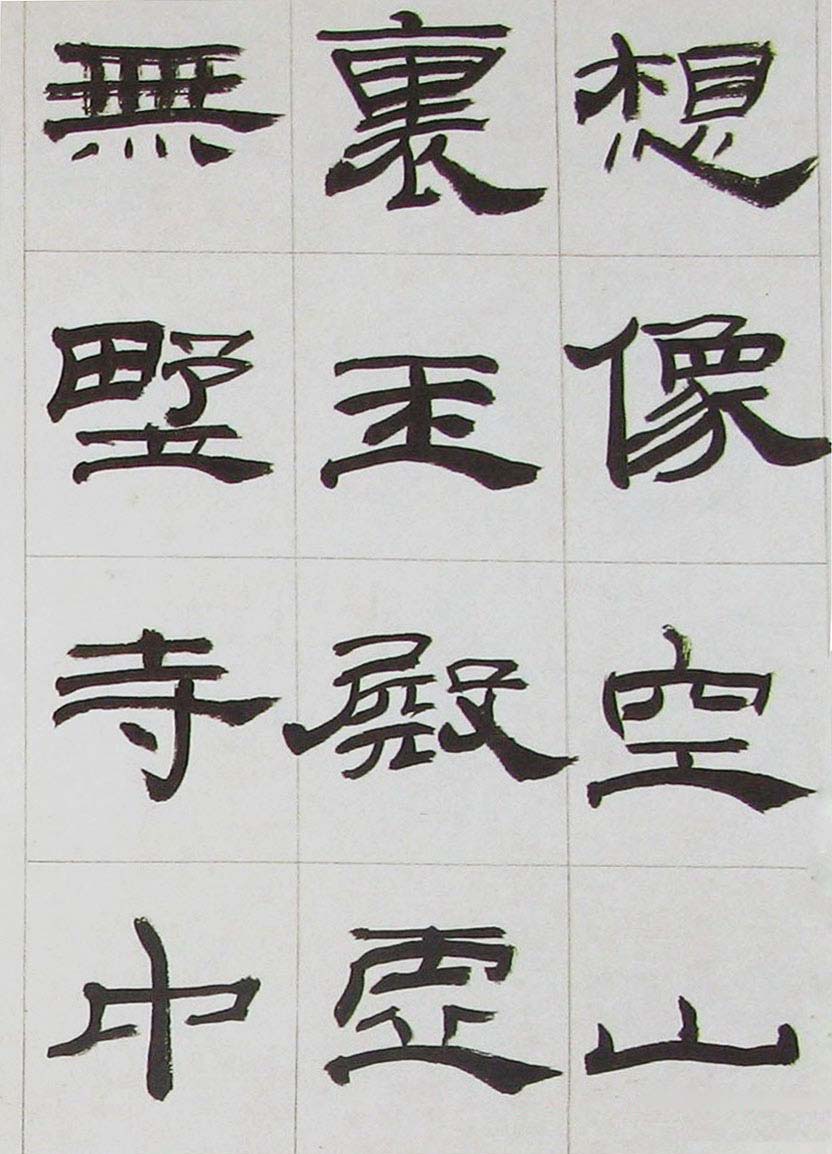 想像空山
裏玉殿虛
無野寺中